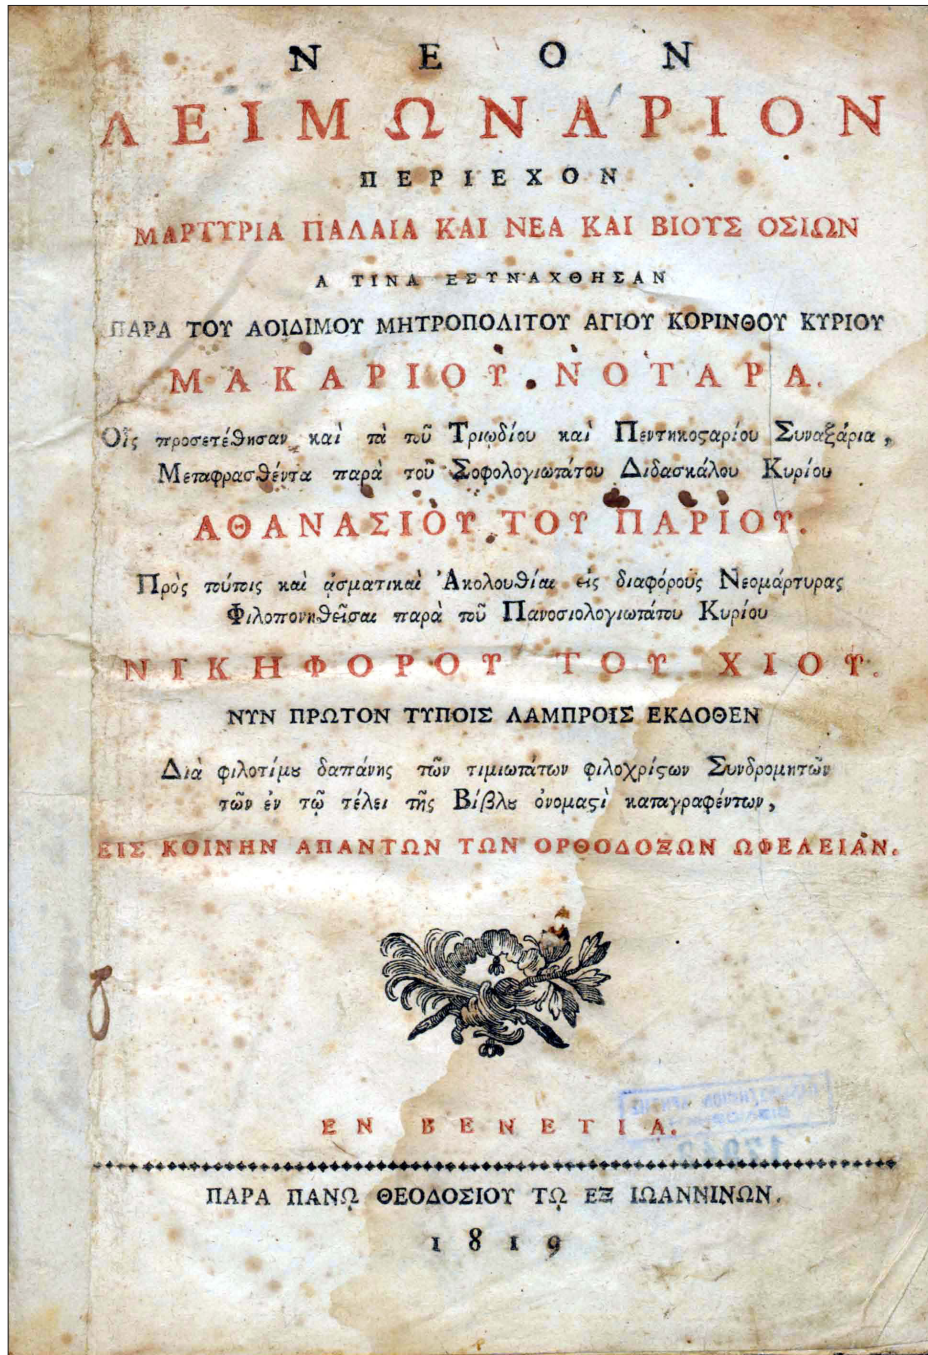 ΝΕΟΝ
ΛΕΙΜΩΝΑΡΙΟΝ
ΠΕΡΙΕΧΟΝ
ΜΑΡΤΥΡΙΑ ΠΑΛΑΙΑ ΚΑΙ ΝΕΑ ΚΑΙ ΒΙΟΥΣ ΟΣΙΩΝ
Α ΤΙΝΑ ΕΣΥΝΑΧΘΗΣΑΝ
ΠΑΡΑ ΤΟΥ ΑΟΙΔΙΜΟΥ ΜΗΤΡΟΠΟΛΙΤΟΥ ΑΓΙΟΥ ΚΟΡΙΝΘΟΥ ΚΥΡΙΟΥ
ΜΑΚΑΡΙΟΥ ΝΟΤΑΡΑ.
Οἷς προσετέθησαν καὶ τὰ τοῦ Τριῳδίου καὶ Πεντηκοϛαρίου Συναξάρια,
Μεταφρασθέντα παρὰ τοῦ Σοφολογιωτάτου Διδασκάλου Κυρίου
ΑΘΑΝΑΣΙΟΥ ΤΟΥ ΠΑΡΙΟΥ.
Πρὸς τούτοις καὶ ᾀσματικαὶ Ἀκολουθίαι εἰς διαφόρους Νεομάρτυρας
Φιλοπονηθεῖσαι παρὰ τοῦ Πανοσιολογιωτάτου Κυρίου
ΝΙΚΗΦΟΡΟΥ ΤΟΥ ΧΙΟΥ.
ΝΥΝ ΠΡΩΤΟΝ ΤΥΠΟΙΣ ΛΑΜΠΡΟΙΣ ΕΚΔΟΘΕΝ
Διὰ φιλοτίμȣ δαπάνης τῶν τιμιωτάτων φιλοχρίϛων Συνδρομητῶν
τῶν ἐν τῷ τέλει τῆς Βίβλȣ ὀνομαϛὶ καταγραφέντων,
ΕΙΣ ΚΟΙΝΗΝ ΑΠΑΝΤΩΝ ΤΩΝ ΟΡΘΟΔΟΞΩΝ ΩΦΕΛΕΙΑΝ.
ΕΝ ΒΕΝΕΤΙΑ.
ΠΑΡΑ ΠΑΝῼ ΘΕΟΔΟΣΙΟΥ Τῼ ΕΞ ΙΩΑΝΝΙΝΩΝ.
1819